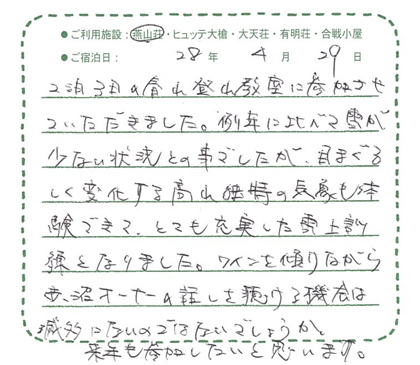 ●ご利用施設：燕山荘・ヒュッテ大槍・大天荘・有明荘・合戦小屋
●ご宿泊日：28年4月29日
2泊3日の春山登山教室に参加させ
ていただきました。例年に比べて雪が
少ない状況との事でしたが、目まぐる
しく変化する高山独特の気象も体
験できて、とても充実した雪上訓
練となりました。ワインを傾けながら
赤沼オーナーの話しを聴ける機会は
滅多にないのではないでしょうか。
来年も参加したいと思います。